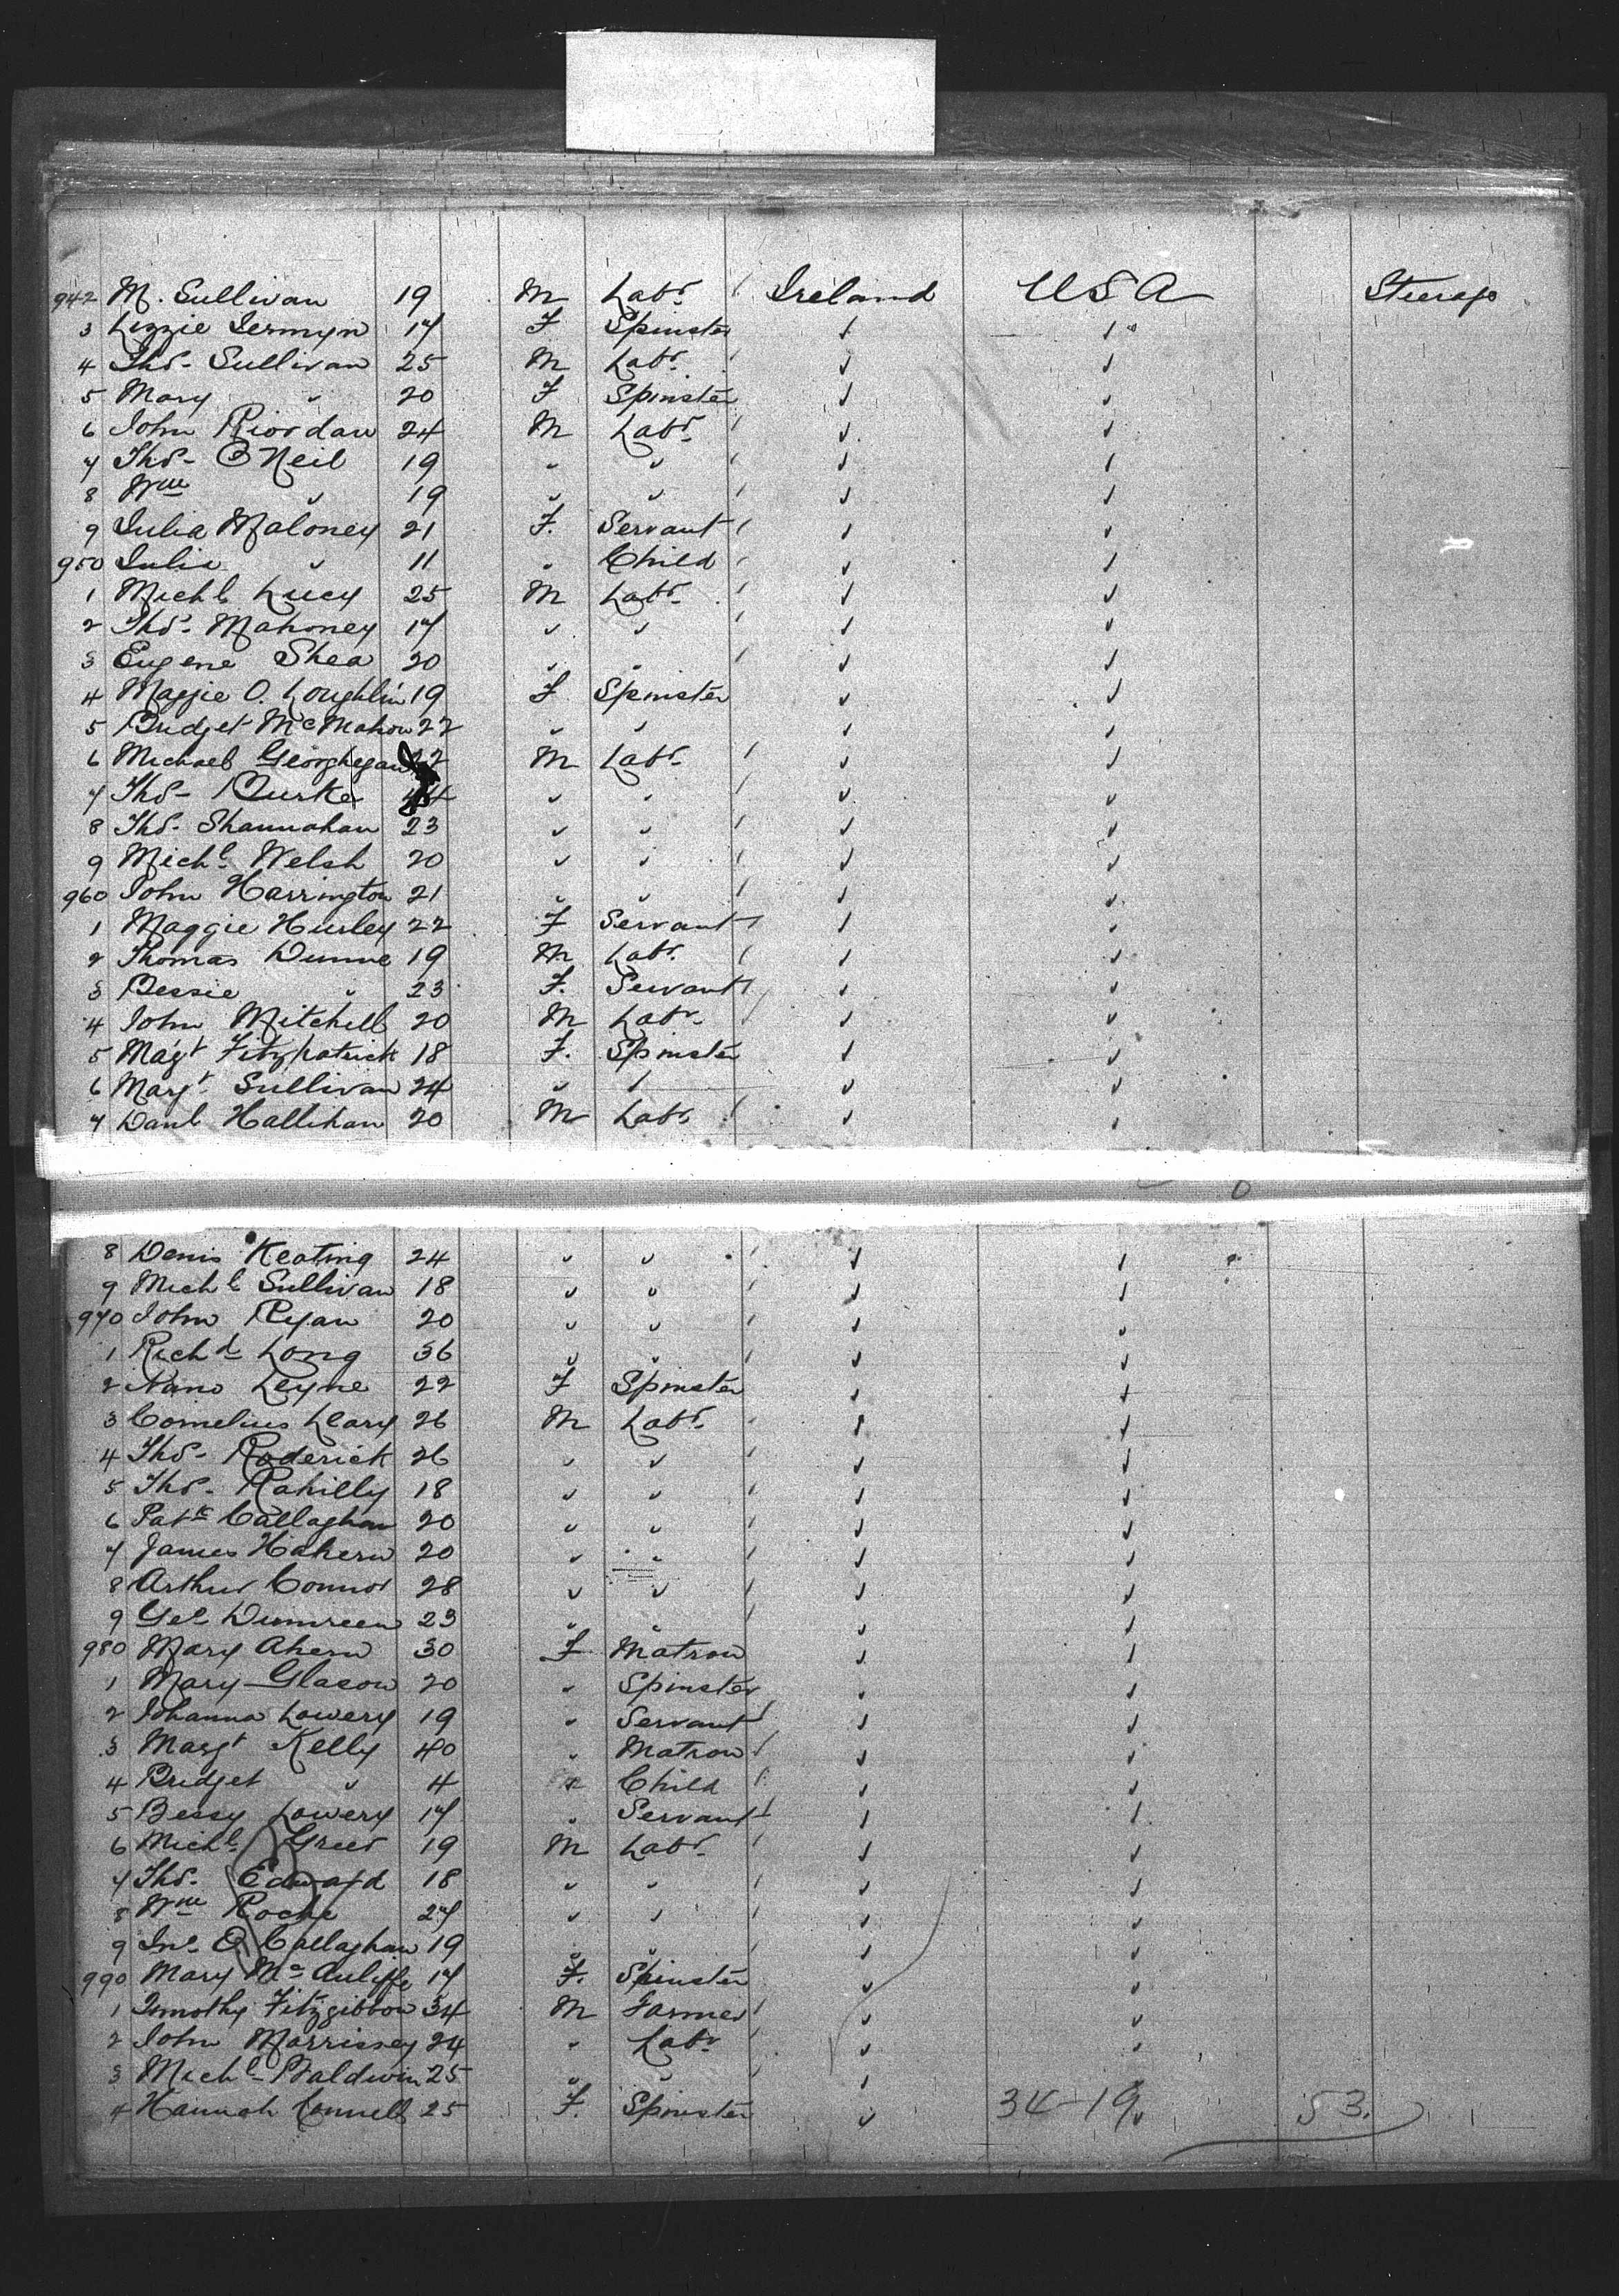 942 M. Sullivan 19 M Labr. Ireland USA Steerage
3 Lizzie Jermyn 17 F Spinster
4 Thos. Sullivan 25 M Labr.
5 Mary " 20 F Spinster
6 John Riordan 24 M Labr.
7 Thos. O Neil 19 " "
8 Wm " 19 " "
9 Julia Maloney 21 F. Servant
950 Julia " 11 " Child
1 Michl Lucy 25 M Labr.
2 Thos. Mahoney 17 " "
3 Eugene Shea 20 " "
4 Maggie O. Loughlin 19 F Spinster
5 Bridget McMahon 22 " "
6 Michael Georghegan 22 M Labr.
7 Thos. Burke " "
8 Thos. Shannahan 23 " "
9 Michl. Welsh 20 " "
960 John Harrington 21 " "
1 Maggie Hurley 22 F Servant
2 Thomas Dunne 19 M Labr.
3 Bessie " 23 F. Servant
4 John Mitchell 20 M Labr.
5 Magt Fitzpatrick 18 F. Spinster
6 Margt. Sullivan 24 " "
7 Danl Hallihan 20 M Labr.
8 Denis Keating 24 " "
9 Michl Sullivan 18 " "
970 John Ryan 20 " "
1 Richd Long 36 " "
2 Nano Leyne 22 F Spinster
3 Cornelius Leary 26 M Labr.
4 Thos. Roderick 26 " "
5 Thos. Rahilly 18 " "
6 Patk Callaghan 20 " "
7 James Hahern 20 " "
8 Arthur Connor 28 " "
9 Geo. 23 " "
980 Mary Ahern 30 F Matron
1 Mary Glason 20 " Spinster
2 Johanna Lowery 19 " Servant
3 Margt Kelly 40 " Matron
4 Bridget " 4 " Child
5 Bessy Lowery 17 " Servant
6 Michl. Greer 19 M Labr.
7 Thos. Edward 18 " "
8 Wm Roche 27 " "
9 Jno. O Callaghan 19 " "
990 Mary McAuliffe 17 F. Spinster
1 Timothy Fitzgibbon 34 M Farmer
2 John Morrissey 24 " Labr
3 Michl. Baldwin 25 " "
4 Hannah Connell 25 F. Spinster 34-19 53.